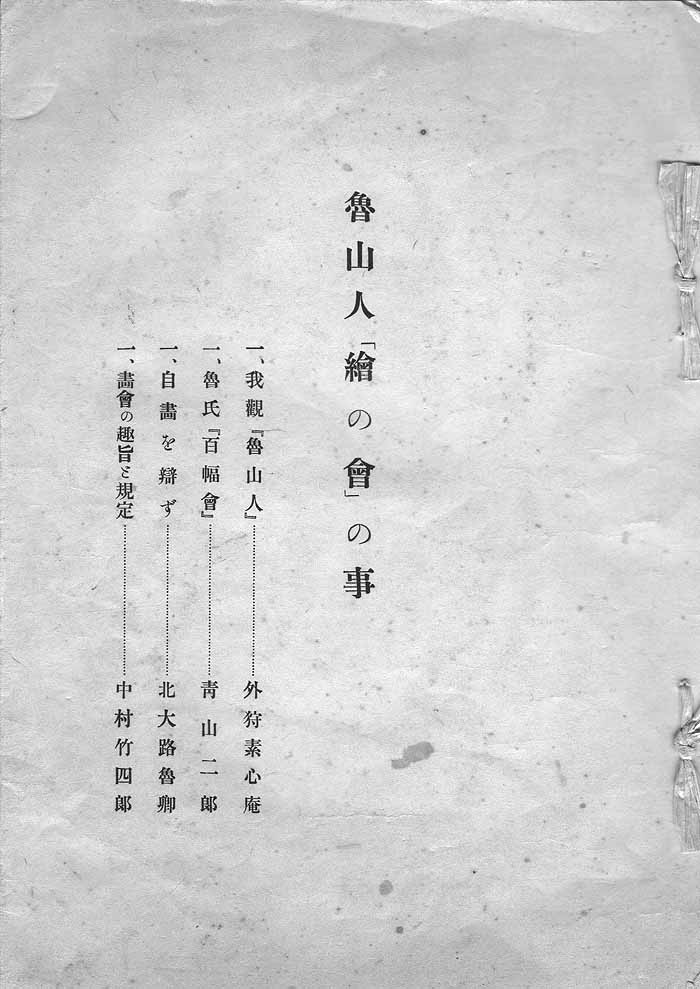 魯山人「繪の會」の事
一、我觀『魯山人』……………………外狩素心庵
一、魯氏『百幅會』……………………靑山二郞
一、自畵を辯ず……………………北大路魯卿
一、畵會の趣旨と規定……………………中村竹四郞